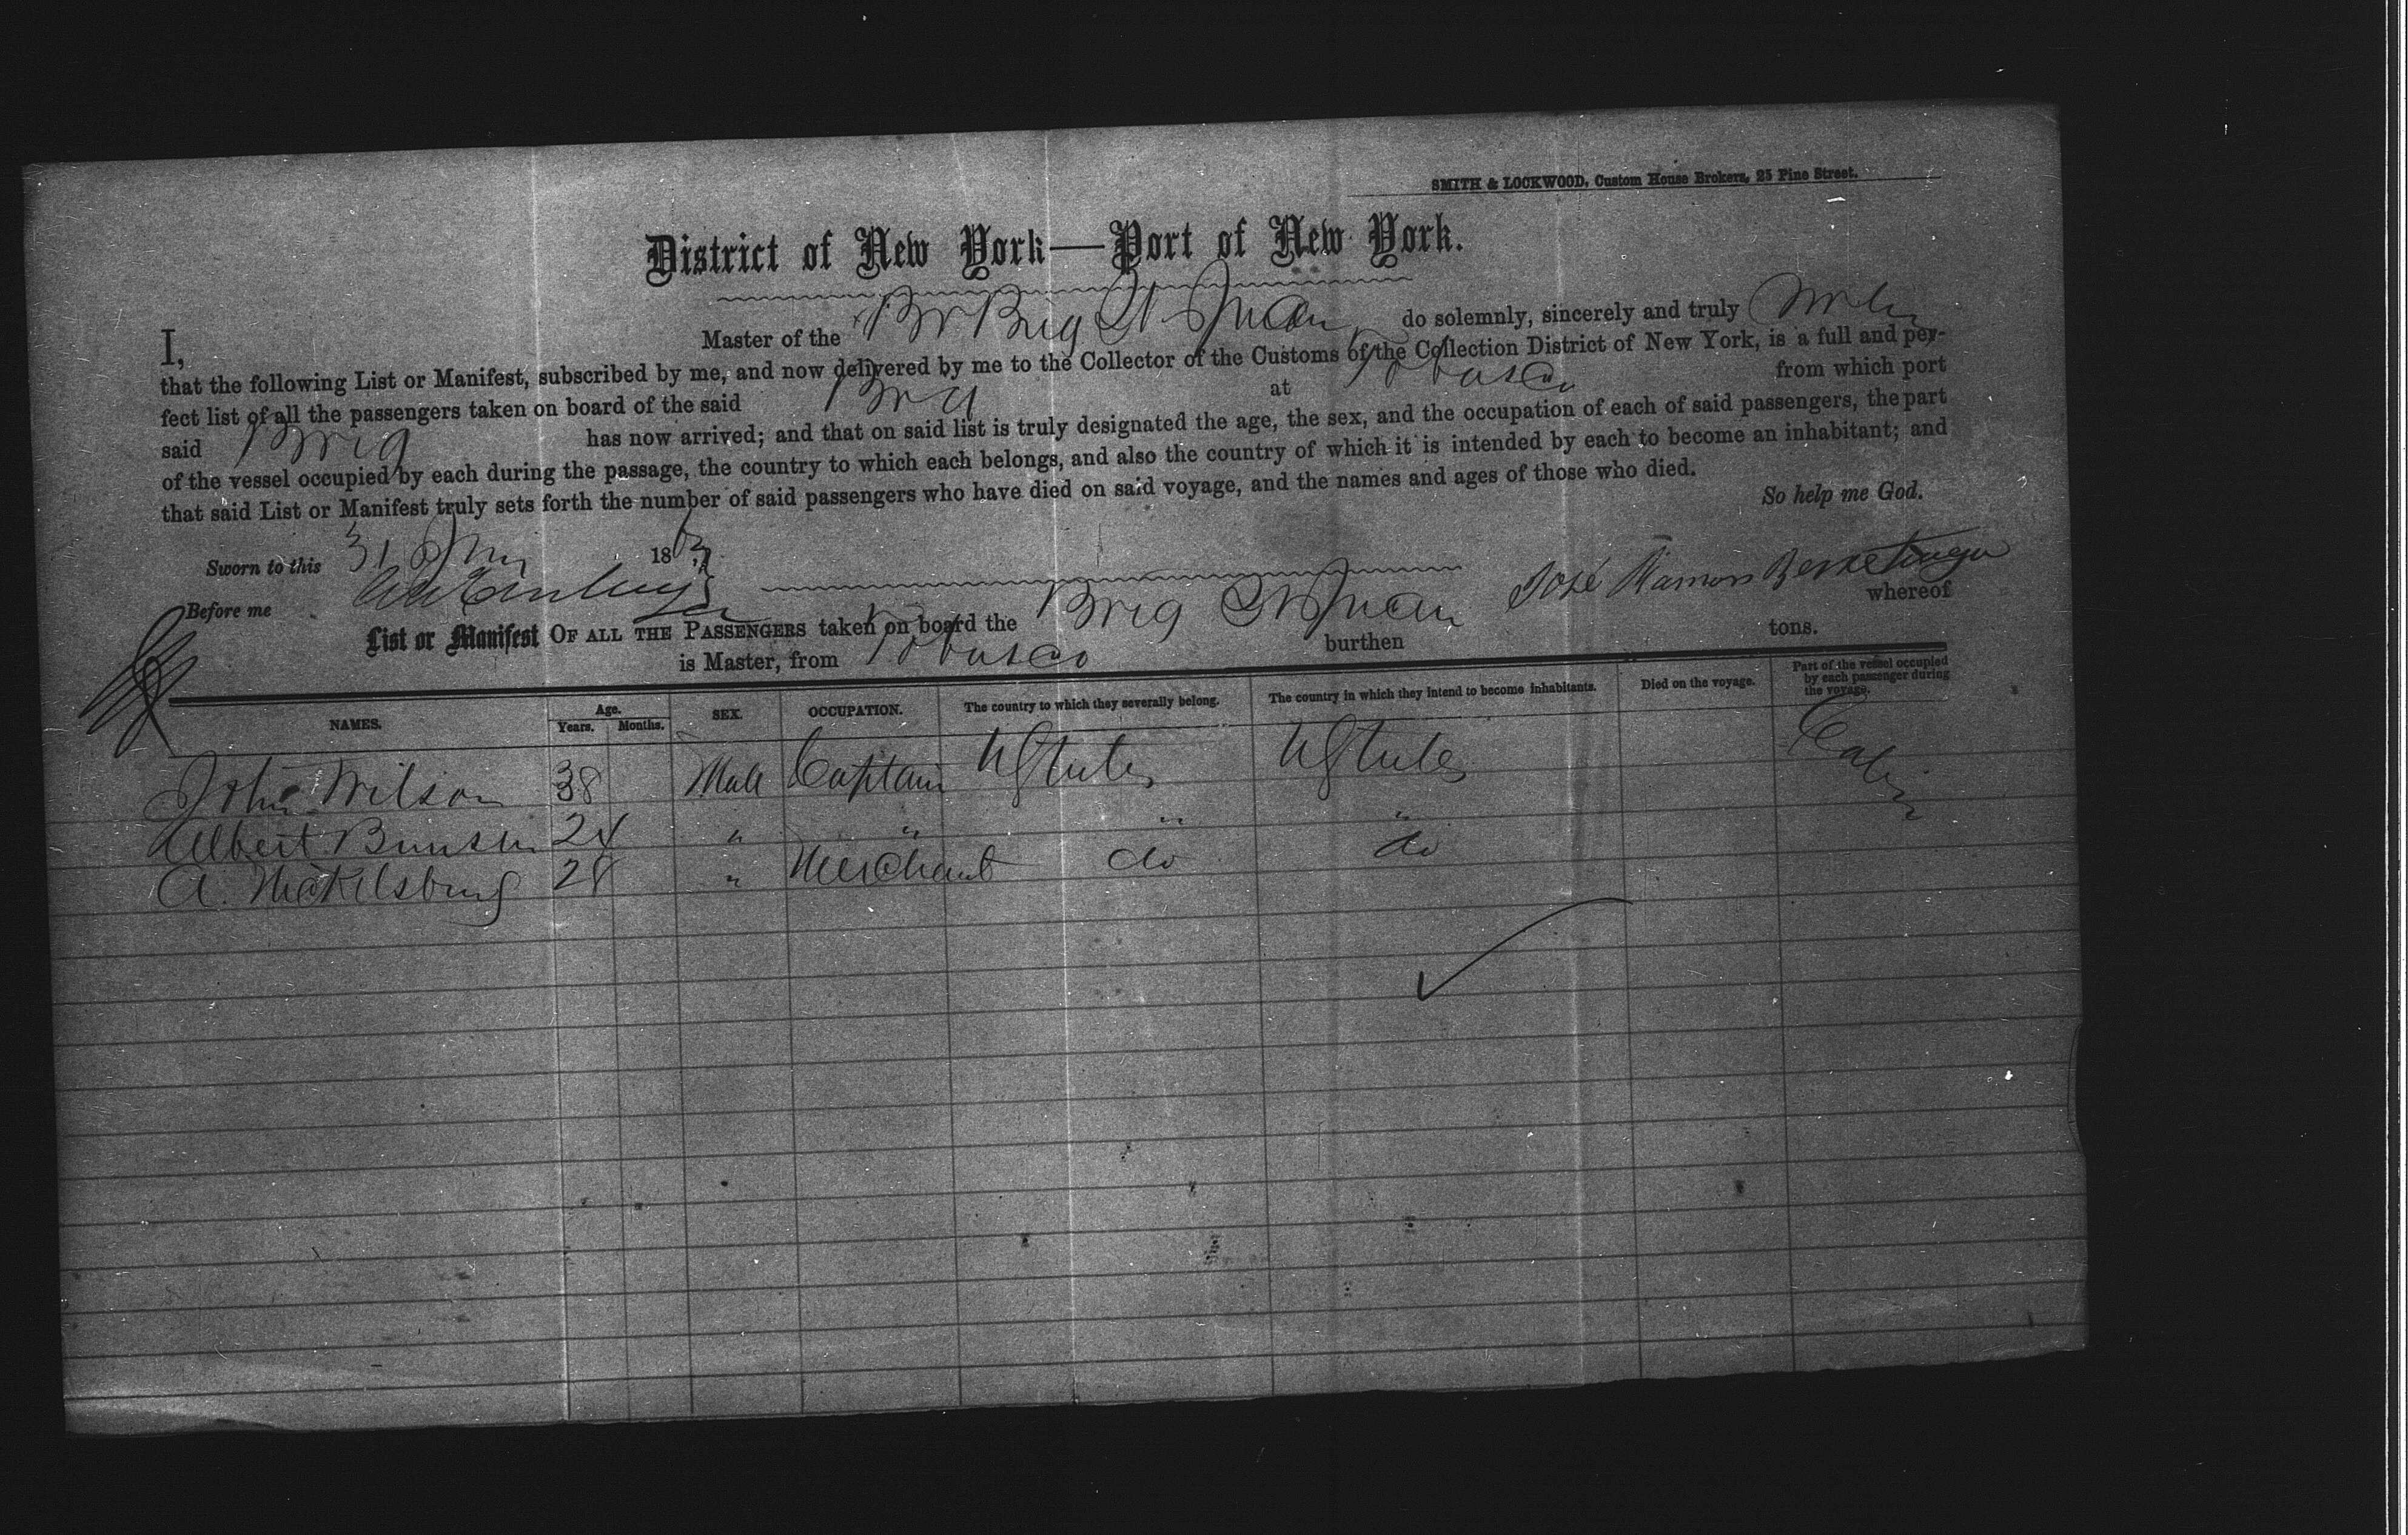 SMITH & LOCKWOOD, Custom House Brokers, 25 Pine Street.
District of New York—Port of New York.
I, Master of the Br Brig St Juan do solemnly, sincerely and truly
that the following List or Manifest, subscribed by me, and now delivered by me to the Collector of the Customs of the Collection District of New York, is a full and per-
fect list of all the passengers taken on board of the said Brig at Tobasco from which port
said Brig has now arrived; and that on said list is truly designated the age, the sex, and the occupation of each of said passengers, the part
of the vessel occupied by each during the passage, the country to which each belongs, and also the country of which it is intended by each to become an inhabitant; and
that said List or Manifest truly sets forth the number of said passengers who have died on said voyage, and the names and ages of those who died.
So help me God.
Sworn to this 31 1863
Before me José Ramon
List or Manifest OF ALL THE PASSENGERS taken on board the Brig St Juan whereof
is Master, from Tobasco burthen tons.
NAMES. Age. Years. Months. SEX. OCCUPATION. The country to which they severally belong. The country in which they intend to become inhabitants. Died on the voyage. Part of the vessel occupied by each passenger during the voyage.
John Wilson 38 Male Captain U States U States Cabin
Albert 24 " " " "
A. 28 " Merchant do do